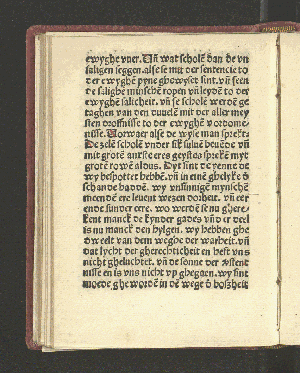 ewyghe vuer. Uñ wat scholē dan de vn
saligen seggen. alse se mit der sentencie to
der ewyghē pyne ghewyset sint. vñ seen
de salighe minschē ropen vñ leydē to der
ewyghē salicheit. vñ se scholē werdē ge
taghen van den duuelē mit der aller mey
sten droffnisse to der ewyghē vordome-
nisse. Vorwaer alse de wyse man sprekt:
De zelē scholē vnder sik suluē beuēde vñ
mit grotē anxste eres geystes sprekē myt
grotē rowē aldus. Dyt sint de yenne de
wy bespottet hebbē. vñ in eine ghelyke d̄
schande haddē. wy vnsinnigē mynschē
meendē ere leuent wezen dorheit. vñ eer
ende sunder eere. wo werdē se nu ghere-
kent manck de kynder gades vñ er deel
is nu manck den hylgen. wy hebben ghe
dweelt van dem weghe der warheit. vñ
dat lycht der gherechticheit en heft vns
nicht gheluchtet. vñ de sonne der vstent
nisse en is vns nicht vp ghegaen. wy sint
moede ghewordē in dē wege d̄ bosheit